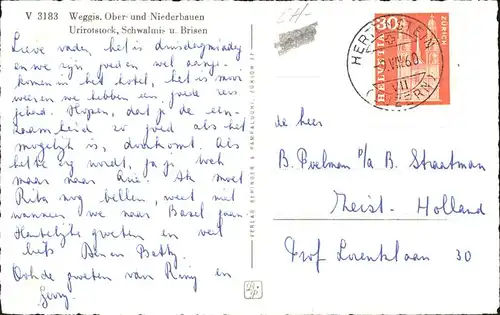 V 3183 Weggis, Ober- und Niederbauen
Urirotstock, Schwalmis u. Brisen
Lieve vaders, het is dinsdagmiddag
en we zijn goed en wel aange-
komen in het hotel, het is mooi
weer en we hebben een goede reis
gehad. Hopen, dat je de een-
zaamheid zo goed als het
mogelijk is, doorkomt. Als
het erg wordt, ga je toch
maar naar huis. Ali moet
Rita nog bellen, weet niet
wanneer we naar Basel gaan.
Hartelijke groeten en veel
liefs Ben en Betty.
Ook de groeten van Riny en
Gerry.
VERLAG BERINGER & PAMPALUCHI, ZÜRICH
30
HELVETIA
ZÜRICH
HERTENSTEIN
VIII 60
(LUZERN)
de heer
B. Poelman p/a B. Straatman
Zeist - Holland
Prof Lorentzlaan 30